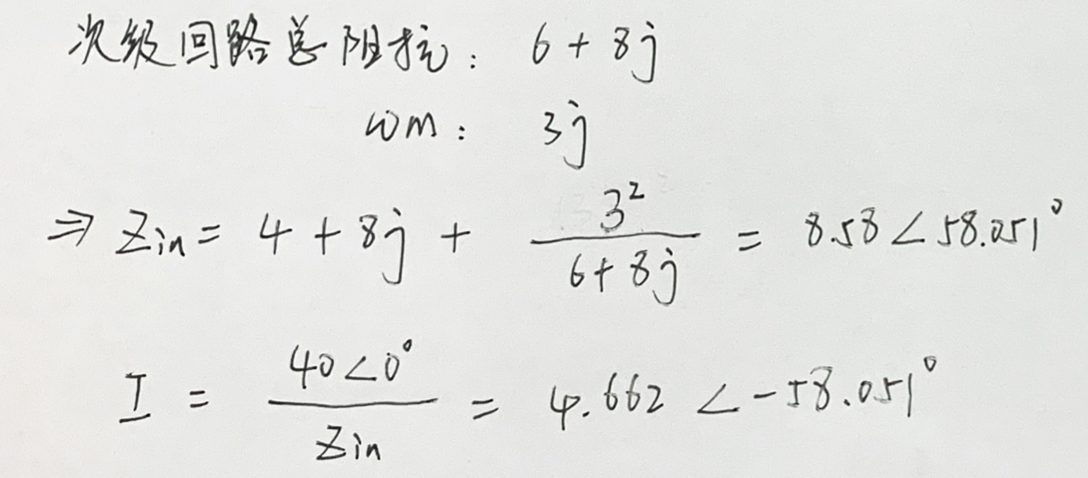 次级回路总阻抗： 6 + 8j
wm： 3j
⇒ Zin = 4 + 8j + 3²/(6 + 8j) = 8.58∠58.051°
I = 40∠0°/Zin = 4.662∠-58.051°